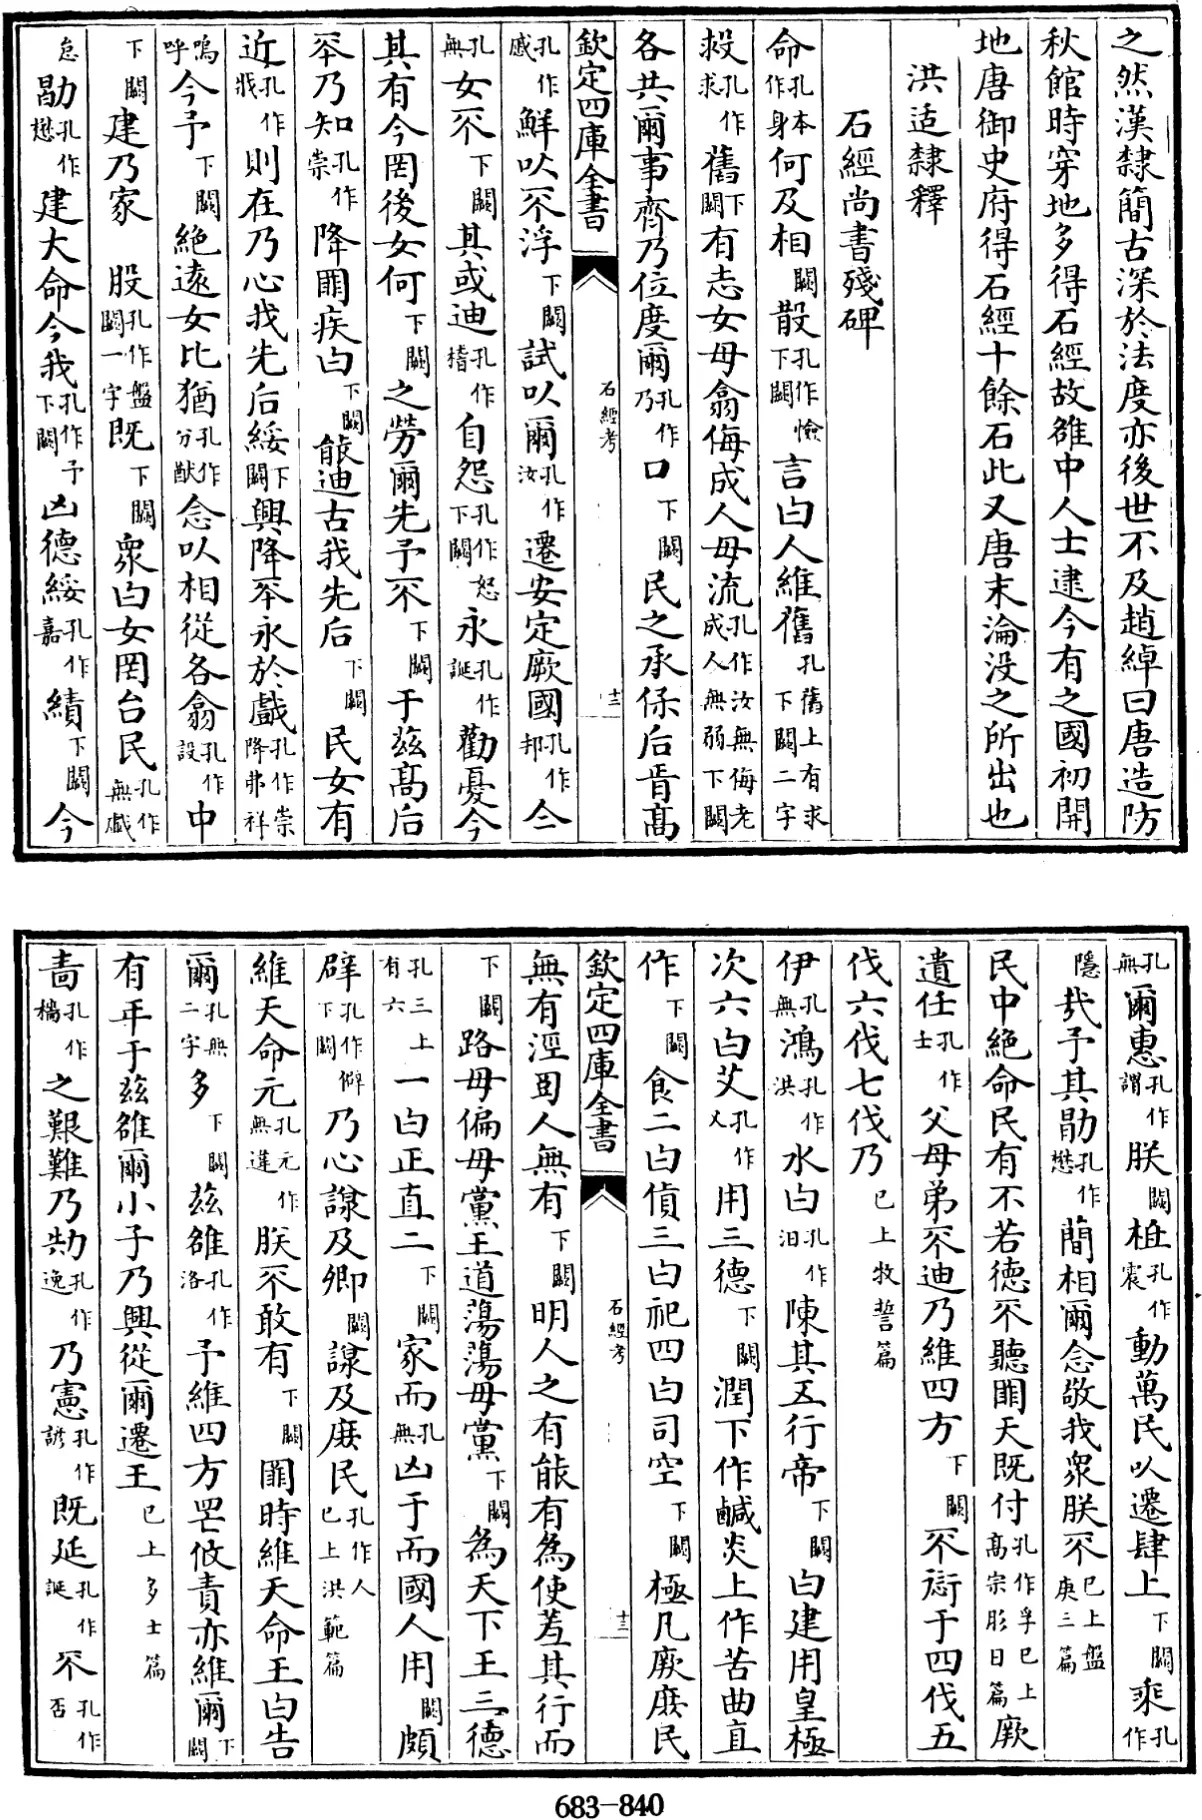 之然漢隸簡古深於法度亦後世不及趙綽曰唐造防
秋館時穿地多得石經故雒中人士逮今有之國初開
地唐御史府得石經十餘石此又唐末淪没之所出也
洪适隸釋
石經尚書殘碑
命孔本作身何及相闕散孔作憸下闕言曰人維舊孔舊上有求下闕二字
救孔作求舊下闕有志女毋翕侮成人毋流孔作汝無侮老成人無弱下闕
各共爾事齊乃位度爾孔作乃口下闕民之承保后胥高
欽定四庫全書 石經考 十二
孔作慼鮮以不浮下闕試以爾孔作汝遷安定厥國孔作邦今
孔無女不下闕其或迪孔作稽自怨孔作怒下闕永孔作誕勸憂今
其有今罔後女何下闕之勞爾先予不下闕于兹高后
㔻乃知孔作崇降𦊱疾曰下闕能迪古我先后下闕民女有
近孔作戕則在乃心我先后綏下闕興降㔻永於戲孔作崇降弗祥
嗚呼今予下闕絶遠女比猶孔作分猷念以相從各翕孔作設中
下闕建乃家 股孔作盤闕一字既下闕衆曰女罔台民孔作無戲
怠勖孔作懋建大命今我孔作予下闕凶德綏孔作嘉績下闕今
孔無爾惠孔作謂朕闕柾孔作震動萬民以遷肆上下闕乘孔作
隱哉予其勖孔作懋簡相爾念敬我衆朕不已上盤庚三篇
民中絶命民有不若德不聽𦊱天既付孔作孚已上高宗肜日篇厥
遺任孔作士父母弟不迪乃維四方下闕不愆于四伐五
伐六伐七伐乃已上牧誓篇
伊孔無鴻孔作洪水曰孔作汩陳其五行帝下闕曰建用皇極
次六曰艾孔作乂用三德下闕潤下作鹹炎上作苦曲直
作下闕食二曰貨三曰祀四曰司空下闕極凡厥庶民
欽定四庫全書 石經考 十三
無有淫朋人無有下闕明人之有能有為使羞其行而
下闕路毋偏毋黨王道蕩蕩毋黨下闕為天下王三德
孔三上有六一曰正直二下闕家而孔無凶于而國人用闕頗
辟孔作僻下闕乃心謀及卿闕謀及庶民孔作人已上洪範篇
維天命元孔元作無違朕不敢有下闕𦊱時維天命王曰告
爾孔無二字多下闕兹雒孔作洛予維四方罔攸責亦維爾下闕
有年于兹雒爾小子乃興從爾遷王已上多士篇
嗇孔作穡之艱難乃劮孔作逸乃憲孔作諺既延孔作誕不孔作否
683-840